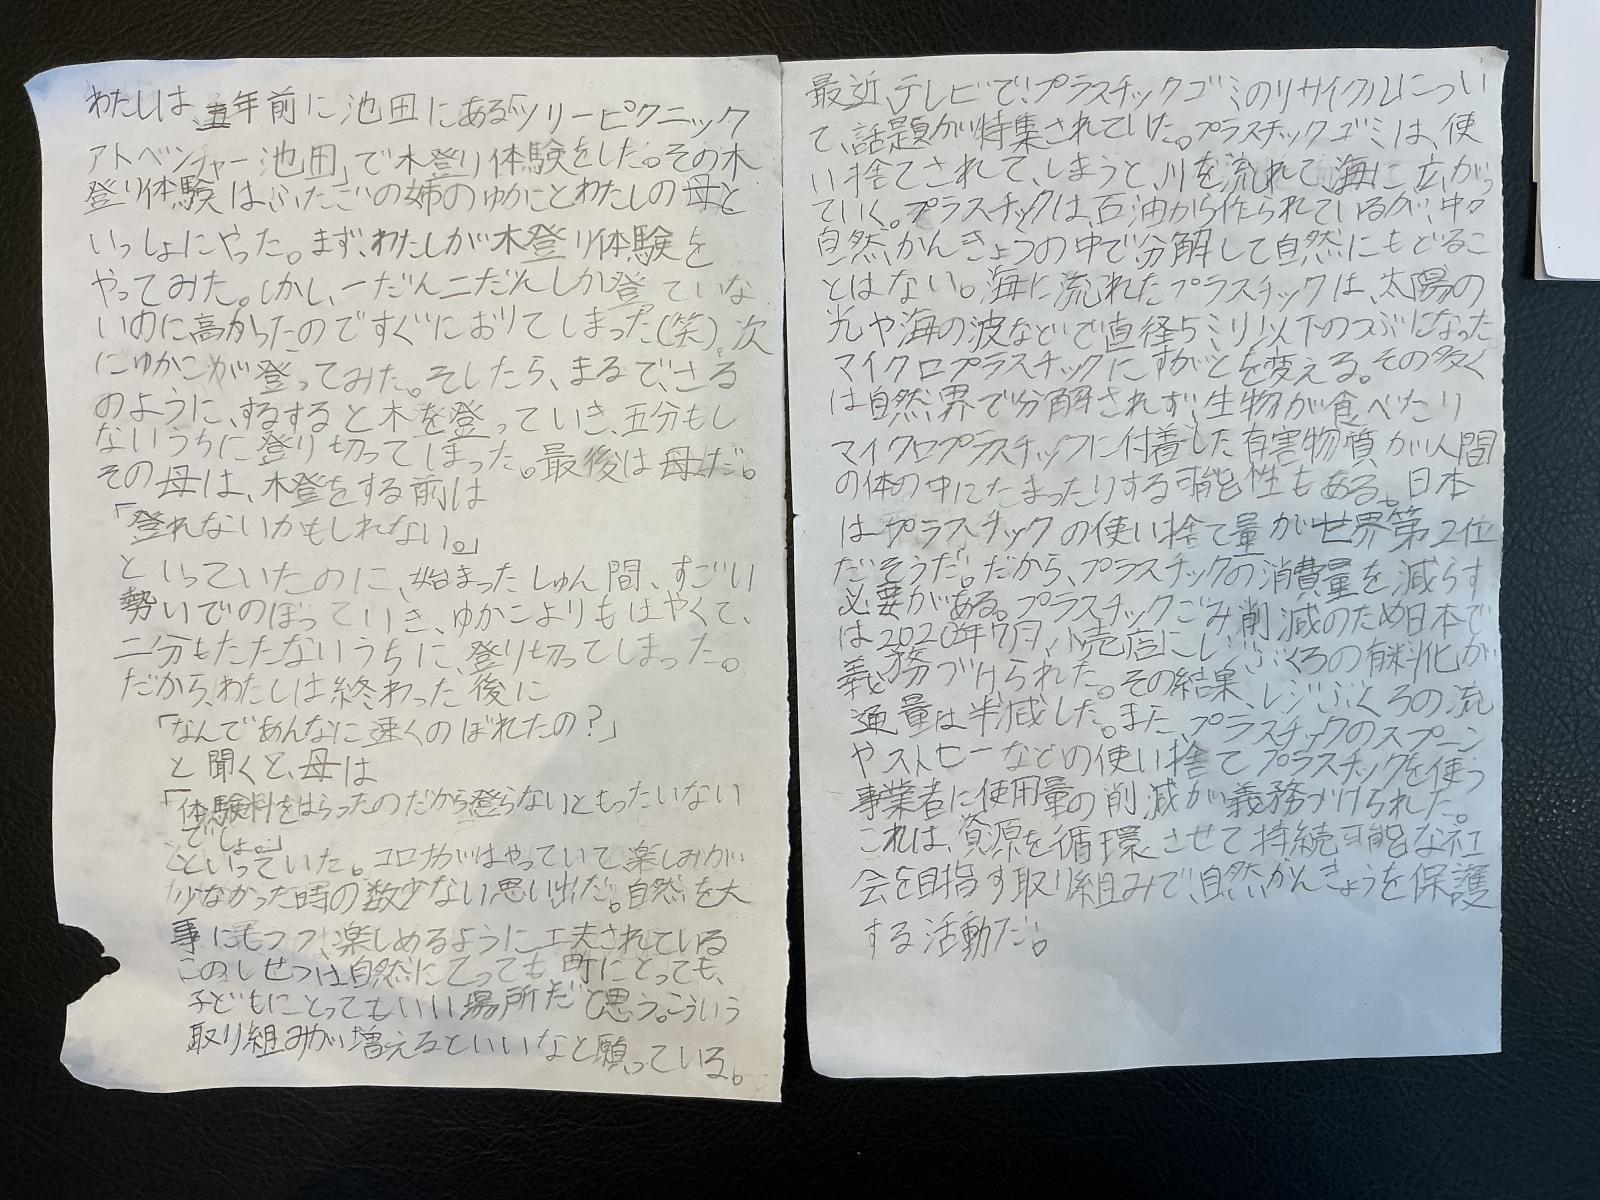 わたしは、五年前に池田にある「ツリーピクニック
アドベンチャー池田」で木登り体験をした。その木
登り体験はふたごの姉のゆかことわたしの母と
いっしょにやった。まず、わたしが木登り体験を
やってみた。しかし、一だん二だんしか登っていな
いのに高かったのですぐにおりてしまった(笑)。次
にゆかこが登ってみた。そしたら、まるで、さる
のように、するすると木を登っていき、五分もし
ないうちに登り切ってしまった。最後は母だ。
その母は、木登をする前は
「登れないかもしれない。」
といっていたのに、始まったしゅん間、すごい
勢いでのぼっていき、ゆかこよりもはやくて、
二分もたたないうちに、登り切ってしまった。
だから、わたしは終わった後に
「なんであんなに速くのぼれたの?」
と聞くと、母は
「体験料をはらったのだから登らないともったいない
でしょ。」
といっていた。コロナがはやっていて楽しみが
少なかった時の数少ない思い出だ。自然を大
事にしつつ、楽しめるように工夫されている
このしせつは自然にとっても町にとっても、
子どもにとってもいい場所だと思う。こういう
取り組みが増えるといいなと願っている。
最近、テレビで、プラスチックゴミのリサイクルについ
て、話題が特集されていた。プラスチックゴミは、使
い捨てされて、しまうと、川を流れて、海に広がっ
ていく。プラスチックは、石油から作られているが、中々
自然かんきょうの中で分解して自然にもどるこ
とはない。海に流れたプラスチックは、太陽の
光や海の波などで直径5ミリ以下のつぶになった
マイクロプラスチックにすがたを変える。その多く
は自然界で分解されず、生物が食べたり
マイクロプラスチックに付着した有害物質が人間
の体の中にたまったりする可能性もある。日本
はプラスチックの使い捨て量が世界第2位
だそうだ。だから、プラスチックの消費量を減らす
必要がある。プラスチックごみ削減のため日本で
は2020年7月、小売店にレジぶくろの有料化が
義務づけられた。その結果、レジぶくろの流
通量は半減した。また、プラスチックのスプーン
やストローなどの使い捨てプラスチックを使う
事業者に使用量の削減が義務づけられた。
これは、資源を循環させて持続可能な社
会を目指す取り組みで、自然かんきょうを保護
する活動だ。